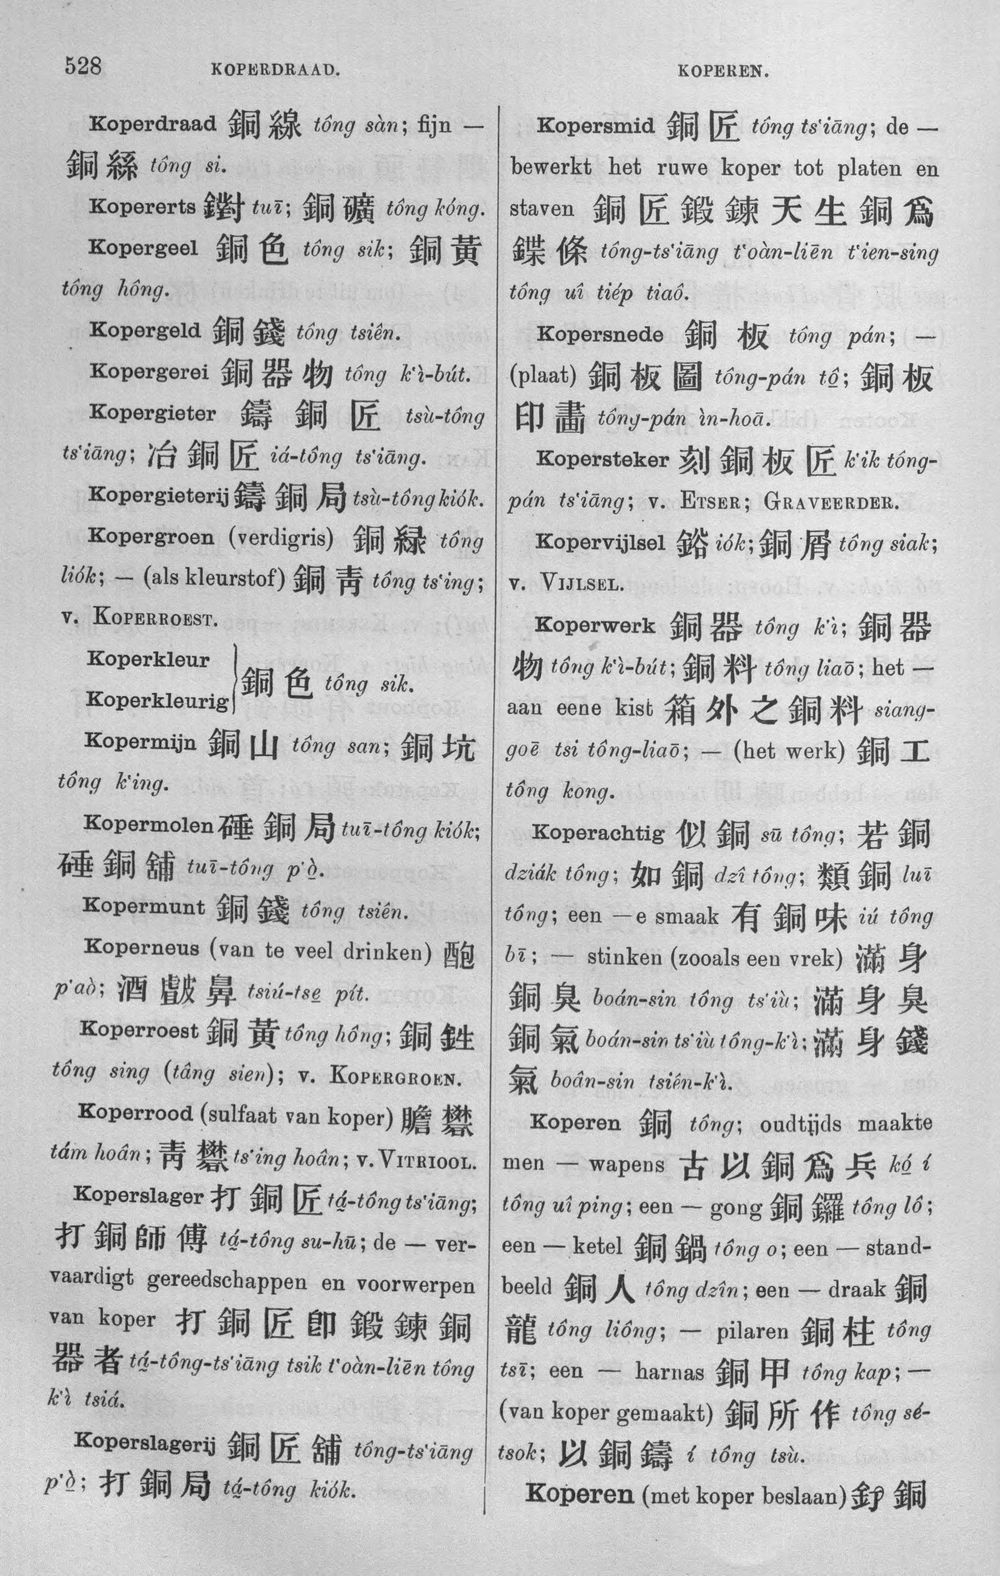 528 KOPERDRAAD. KOPEREN.
Koperdraad 銅線 tông sàn; fijn —
銅絲 tông si.
Kopererts 䥷 tuī; 銅礦 tông kóng.
Kopergeel 銅色 tông sik; 銅黃
tông hông.
Kopergeld 銅錢 tông tsiên.
Kopergerei 銅器物 tông k‘ì-bút.
Kopergieter 鑄銅匠 tsù-tông
ts‘iāng; 冶銅匠 iá-tông ts‘iāng.
Kopergieterij 鑄銅局 tsù-tông kiók.
Kopergroen (verdigris) 銅緑 tông
liók; — (als kleurstof) 銅靑 tông ts‘ing;
v. KOPERROEST.
Koperkleur
Koperkleurig 銅色 tông sik.
Kopermijn 銅山 tông san; 銅坑
tông k‘ing.
Kopermolen 硾銅局 tuī-tông kiók;
硾銅舖 tuī-tông p‘ò͘.
Kopermunt 銅錢 tông tsiên.
Koperneus (van te veel drinken) 皰
p‘aò; 酒皻鼻 tsiú-tse pít.
Koperroest 銅黃 tông hông; 銅鉎
tông sing (tâng sien); v. KOPERGROEN.
Koperrood (sulfaat van koper) 膽礬
tám hoân; 靑礬 ts‘ing hoân; v. VITRIOOL.
Koperslager 打銅匠 tá-tông ts‘iāng;
打銅師傅 tá-tông su-hū; de — ver-
vaardigt gereedschappen en voorwerpen
van koper 打銅匠卽鍛鍊銅
器者 tá-tông-ts‘iāng tsik t‘oàn-liēn tông
k‘ì tsiá.
Koperslagerij 銅匠舖 tông-ts‘iāng
p‘ò͘; 打銅局 tá-tông kiók.
Kopersmid 銅匠 tông ts‘iāng; de —
bewerkt het ruwe koper tot platen en
staven 銅匠鍛鍊天生銅爲
鍱條 tông-ts‘iāng t‘oàn-liēn t‘ien-sing
tông uî tiép tiaô.
Kopersnede 銅板 tông pán; —
(plaat) 銅板圖 tông-pán tô͘; 銅板
印畵 tông-pán ìn-hoā.
Kopersteker 刻銅板匠 k‘ik tông-
pán ts‘iāng; v. ETSER; GRAVEERDER.
Kopervijlsel 鋊 iók; 銅屑 tông siak;
v. VIJLSEL.
Koperwerk 銅器 tông k‘ì; 銅器
物 tông k‘ì-bút; 銅料 tông liaō; het —
aan eene kist 箱外之銅料 siang-
goē tsi tông-liaō; — (het werk) 銅工
tông kong.
Koperachtig 似銅 sū tông; 若銅
dziák tông; 如銅 dzî tông; 類銅 luī
tông; een —e smaak 有銅味 iú tông
bī; — stinken (zooals een vrek) 滿身
銅臭 boán-sin tông ts‘iù; 滿身臭
銅氣 boán-sin ts‘iù tông-k‘ì; 滿身錢
氣 boân-sin tsiên-k‘ì.
Koperen 銅 tông; oudtijds maakte
men — wapens 古以銅爲兵 kó͘ í
tông uî ping; een — gong 銅鑼 tông lô;
een — ketel 銅鍋 tông o; een — stand-
beeld 銅人 tông dzîn; een — draak 銅
龍 tông liông; — pilaren 銅柱 tông
tsī; een — harnas 銅甲 tông kap; —
(van koper gemaakt) 銅所作 tông sé-
tsok; 以銅鑄 í tông tsù.
Koperen (met koper beslaan) 銅